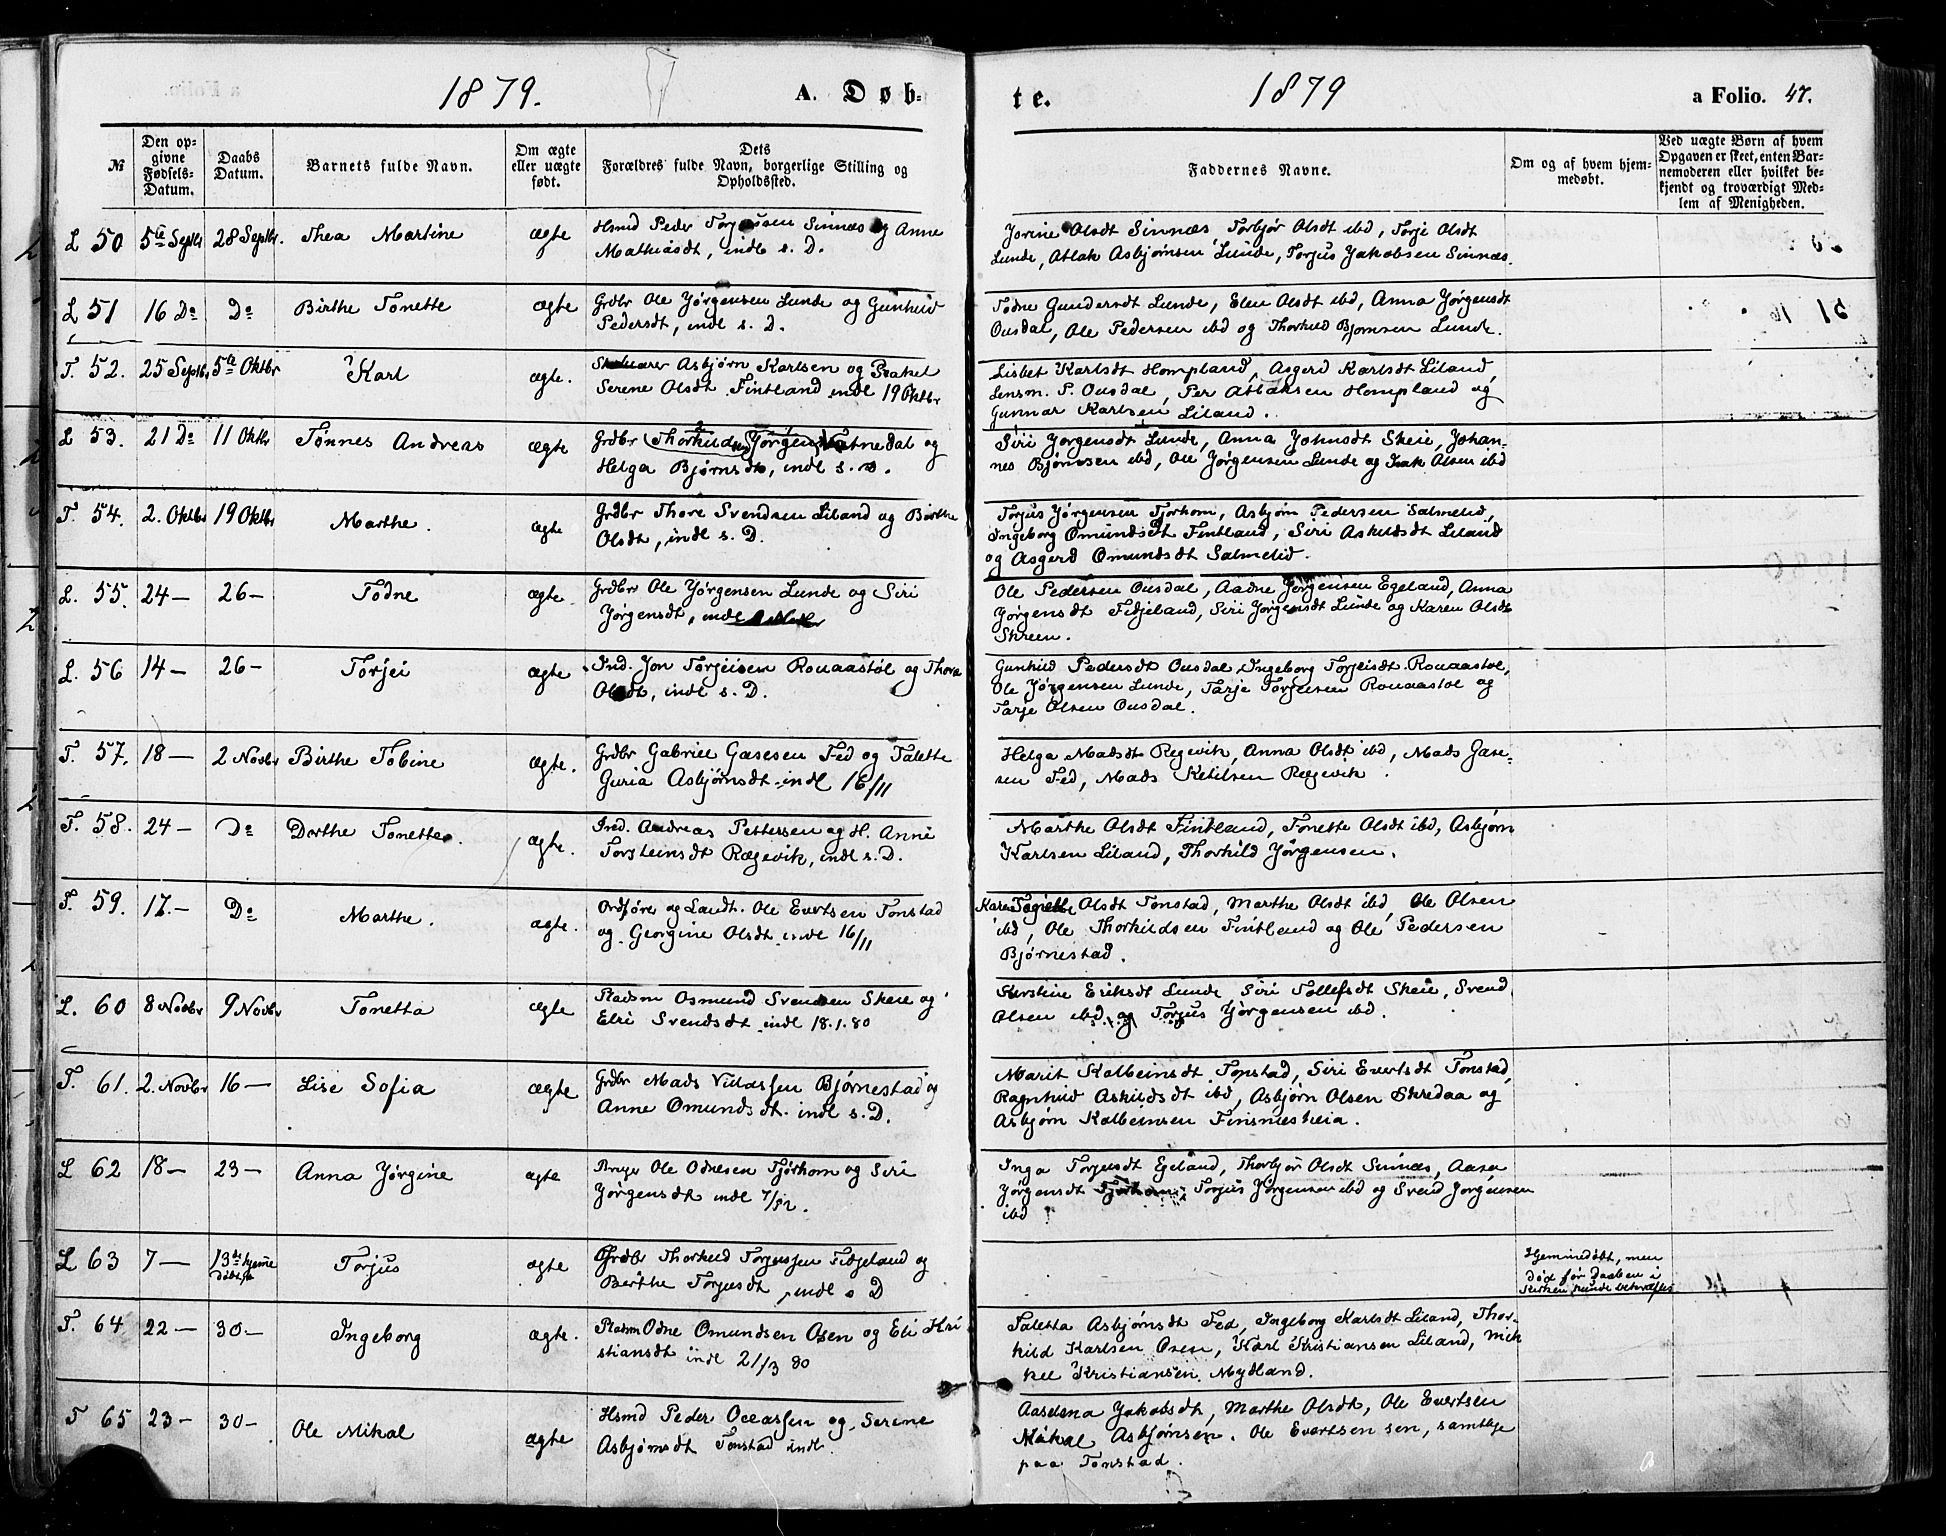 1879. A. Døb-
te. 1879 a Folio. 47.
№
Den op-
givne
Fødsels-
Datum.
Daabs
Datum.
Barnets fulde Navn.
Om ægte
eller uægte
født.
Dets
Forældres fulde Navn, borgerlige Stilling og
Opholdssted.
Faddernes Navne.
Om og af hvem hjem-
medøbt.
Ved uægte Børn af hvem
Opgaven er skeet, enten Bar-
nemoderen eller hvilket be-
kjendt og troværdigt Med-
lem af Menigheden.
L 50 5te Septbr 28 Septbr. Thea Martine ægte Hsmd Peder Torjussen Sinnæs og Anne
Mathiasdt, indl s. D.
Jorine Olsdt Sinnæs Torbjør Olsdt ibd, Torje Olsdt
Lunde, Atlak Asbjørnsen Lunde, Torjus Jakobsen Sinnæs.
L 51 16 Do Do Birthe Tonette ægte Grdbr Ole Jørgensen Lunde og Gunhild
Pedersdt, indl s. D.
Todne Gundersdt Lunde, Elen Olsdt ibd, Anna Jørgensdt
Ousdal, Ole Pedersen ibd og Thorkild Bjørnsen Lunde.
T. 52. 25 Septbr 5te Oktbr Karl ægte. Asbjørn Karlsen og Rakel
Serene Olsdt Fintland indl 19 Oktbr
Lisbet Karlsdt Hompland, Asgerd Karlsdt Liland,
Lensm. P. Ousdal, Per Atlaksen Hompland og
Gunnar Karlsen Liland.
L 53. 21 Do 11 Oktbr Tønnes Andreas ægte Grdbr Thorkild Jørgensen Netnedal og
Helga Bjørnsdt, indl s. D.
Siri Jørgensdt Lunde, Anna Johnsdt Skeie, Johan-
nes Bjørnsen ibd, Ole Jørgensen Lunde og Isak Olsen ibd
T. 54. 2. Oktbr 19 Oktbr Marthe. ægte Grdbr Thore Svendsen Liland og Birthe
Olsdt, indl s. D.
Torjus Jørgensen Tjorhom, Asbjørn Pedersen Salmelid,
Ingeborg Omundsdt Fintland, Siri Askildsdt Liland
og Asgerd Omundsdt Salmelid.
L. 55. 24 — 26 — Todne ægte Grdbr Ole Jørgensen Lunde og Siri
Jørgensdt, indl
Ole Pedersen Ousdal, Aadne Jørgensen Egeland, Anna
Jørgensdt Fidjeland, Siri Jørgensdt Lunde og Karen Olsdt
Skreen.
L. 56 14 — 26 — Torjei ægte Ind. Jon Torjeisen Rouaastøl og Thora
Olsdt, indl s. D.
Gunhild Pedersdt Ousdal, Ingeborg Torjeisdt Rouaastøl,
Ole Jørgensen Lunde, Tarje Torjeisen Rouaastøl og
Tarje Olsen Ousdal.
T. 57. 18 — 2 Novbr Birthe Tobine ægte. Grdbr Gabriel Gasesen Fed og Talette
Guria Asbjørnsdt indl 16/11
Helga Madsdt Regevik, Anna Olsdt ibd, Mads Gase-
sen Fed, Mads Ketilsen Regevik.
T. 58. 24 — Do Dorthe Tonette. ægte. Ind. Andreas Pettersen og H. Anne
Torsteinsdt Rægevik, indl s. D.
Marthe Olsdt Fintland, Tonette Olsdt ibd, Asbjørn
Karlsen Liland, Thorkild Jørgensen.
T. 59. 17. — Do Marthe. ægte. Ordfører og Landh. Ole Evertsen Tonstad
og Georgine Olsdt indl 16/11
Karen Olsdt Tonstad, Marthe Olsdt ibd, Ole Olsen
ibd, Ole Thorkildsen Fintland og Ole Pedersen
Bjørnestad.
L. 60 8 Novbr 9 Novbr Tonetta ægte Pladsm Osmund Svendsen Skeie og
Elri Svendsdt indl 18.1.80
Kerstine Eriksdt Lunde, Siri Tollefsdt Skeie, Svend
Olsen ibd og Torjus Jørgensen ibd.
T. 61. 2. Novbr 16 — Lise Sofia ægte Grdbr Mads Villassen Bjørnestad og
Anne Omundsdt. indl s. D.
Marit Kolbeinsdt Tonstad, Siri Evertsdt Tonstad,
Ragnhild Askildsdt ibd, Asbjørn Olsen Skredaa og
Asbjørn Kolbeinsen Finsnesheia.
L 62 18 — 23 — Anna Jørgine ægte Bruger Ole Odnesen Tjørhom og Siri
Jørgensdt indl
Inga Torjusdt Egeland, Thorbjør Olsdt Sinnæs, Aasa
Jørgensdt Tjørhom, Torjus Jørgensen ibd og Svend Jørgensen
ibd
L 63 7 — 13de hjemme
døbt Torjus ægte Grdbr Thorkild Torjussen Fidjeland og
Berthe Torjusdt, indl s D
Hjemmedøbt, men
død før Daaben i
Kirken kunde bekræftes
T. 64 22 — 30 — Ingeborg ægte. Pladsm Odne Omundsen Osen og Eli Kri
stiansdt indl 21/3 80
Taletta Asbjørnsdt Fed, Ingeborg Karlsdt Liland, Thor-
kild Karlsen Osen, Karl Kristiansen Liland, Mik
kel Kristiansen Mydland.
T 65 23 — 30 — Ole Mikal ægte Hsmd Peder Oleassen og Serine
Asbjørnsdt Tonstad indl.
Aaselena Jakobsdt, Marthe Olsdt, Ole Evertsen
Mikal Asbjørnsen. Ole Evertsen sen, samtlige
paa Tonstad.